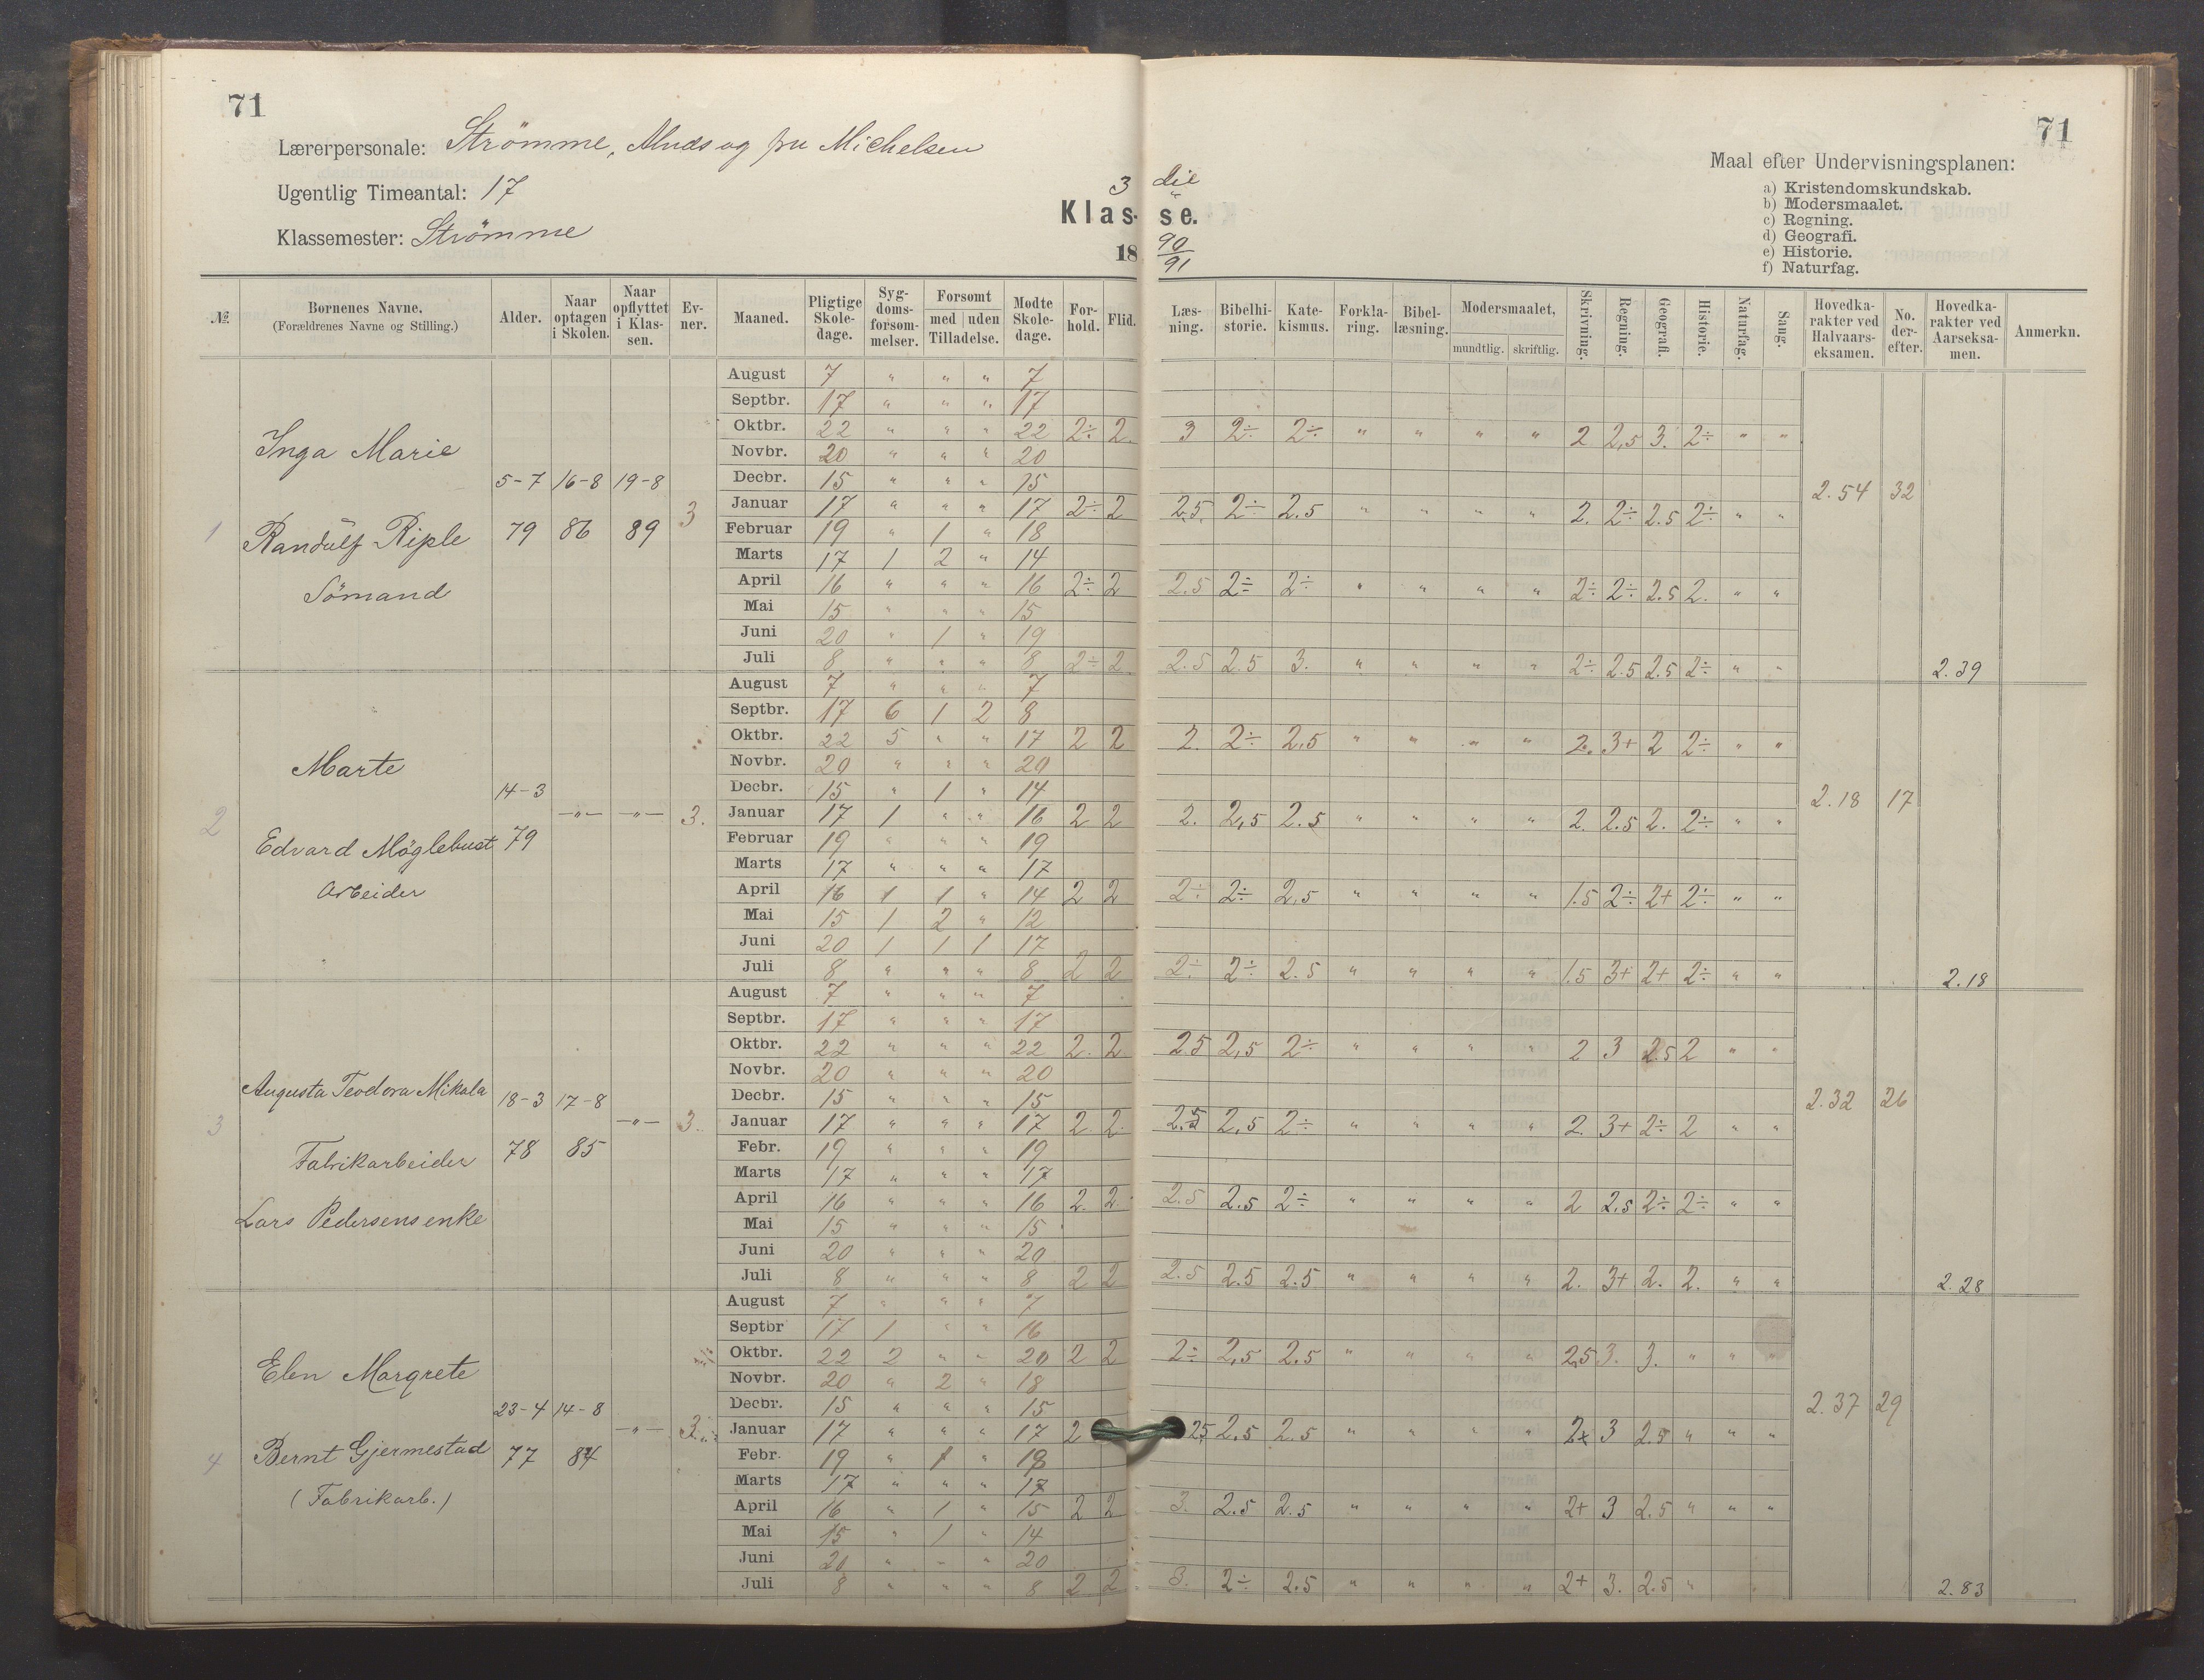 71
71
Lærerpersonale: Strömme, Aluds og fru Michelsen
Ugentlig Timeantal: 17
Klassemester: Strömme
3 die
Klas- se.
18 90/91
Maal efter Undervisningsplanen:
a) Kristendomskundskab.
b) Modersmaalet.
c) Regning.
d) Geografi.
e) Historie.
f) Naturfag.
№ Børnenes Navne. (Forældrenes Navne og Stilling.) Alder. Naar optagen i Skolen. Naar opflyttet i Klassen. Evner. Maaned. Pligtige Skoledage. Sygdomsforsømmelser. Forsømt med uden Tilladelse. Mødte Skoledage. Forhold. Flid. Læsning. Bibelhistorie. Katekismus. Forklaring. Bibellæsning. Modersmaalet, mundtlig. skriftlig. Skrivning. Regning. Geografi. Historie. Naturfag. Sang. Hovedkarakter ved Halvaarseksamen. No. derefter. Hovedkarakter ved Aarseksamen. Anmerkn.
1 Inga Marie
Randulf Riple
Sömand
5-7 79 16-8 86 19-8 89 3
August 7 " " " 7
Septbr. 17 " " " 17
Oktbr. 22 " " " 22 2÷ 2 3 2÷ 2÷ " " " " 2 2,5 3. 2÷ " "
Novbr. 20 " " " 20
Decbr. 15 " " " 15
2.54 32
Januar 17 " " " 17 2÷ 2 2.5 2÷ 2.5 " " " " 2. 2÷ 2.5 2÷ " "
Februar 19 " 1 " 18
Marts 17 1 2 " 14
April 16 " " " 16 2÷ 2 2.5 2÷ 2÷ " " " " 2÷ 2÷ 2.5 2. " "
Mai 15 " " " 15
Juni 20 " 1 " 19
Juli 8 " " " 8 2÷ 2 2.5 2.5 3. " " " " 2÷ 2.5 2.5 2÷ " " 2.39
2 Marte
Edvard Möglebust
Arbeider
14-3 79 -"- -"- 3.
August 7 " " " 7
Septbr. 17 6 1 2 8
Oktbr. 22 5 " " 17 2 2 2. 2÷ 2.5 " " " " 2. 3+ 2 2÷ " "
Novbr. 20 " " " 20
Decbr. 15 " 1 " 14
2.18 17
Januar 17 1 " " 16 2 2 2. 2,5 2.5 " " " " 2. 2.5 2. 2÷ " "
Februar 19 " " " 19
Marts 17 " " " 17
April 16 1 1 " 14 2 2 2÷ 2÷ 2.5 " " " " 1.5 2÷ 2+ 2÷ " "
Mai 15 1 2 " 12
Juni 20 1 1 1 17
Juli 8 " " " 8 2 2 2÷ 2÷ 2.5 " " " " 1.5 3+ 2+ 2÷ " " 2.18
3 Augusta Teodora Mikala
Fabrikarbeider
Lars Pedersens enke
18-3 78 17-8 85 -"- 3.
August 7 " " " 7
Septbr. 17 " " " 17
Oktbr. 22 " " " 22 2. 2 2.5 2,5 2÷ " " " " 2 3 2.5 2 " "
Novbr. 20 " " " 20
Decbr. 15 " " " 15
2.32 26
Januar 17 " " " 17 2 2. 2.5 2,5 2÷ " " " " 2. 3+ 2÷ 2 " "
Febr. 19 " " " 19
Marts 17 " " " 17
April 16 " " " 16 2. 2 2.5 2.5 2÷ " " " " 2 2.5 2÷ 2÷ " "
Mai 15 " " " 15
Juni 20 " " " 20
Juli 8 " " " 8 2 2 2.5 2.5 2.5 " " " " 2. 3+ 2. 2. " " 2.28
4 Elen Margrete
Bernt Gjermestad
(Fabrikarb.)
23-4 77 14-8 84 -"- 3.
August 7 " " " 7
Septbr 17 1 " " 16
Oktbr. 22 2 " " 20 2 2 2÷ 2,5 2.5 " " " " 2,5 3. 3. " " "
Novbr. 20 " 2 " 18
Decbr. 15 " " " 15
2.37 29
Januar 17 " " " 17 2 25 2.5 2.5 " " " " 2+ 3 2.5 " " "
Febr. 19 " 1 " 18
Marts 17 " " " 17
April 16 " 1 " 15 2 2 3. 2.5 2.5 " " " " 2+ 3 2.5 " " "
Mai 15 " 1 " 14
Juni 20 " " " 20
Juli 8 " " " 8 2 2 3. 2÷ 2.5 " " " " 2+ 3. 2.5 " 2.83